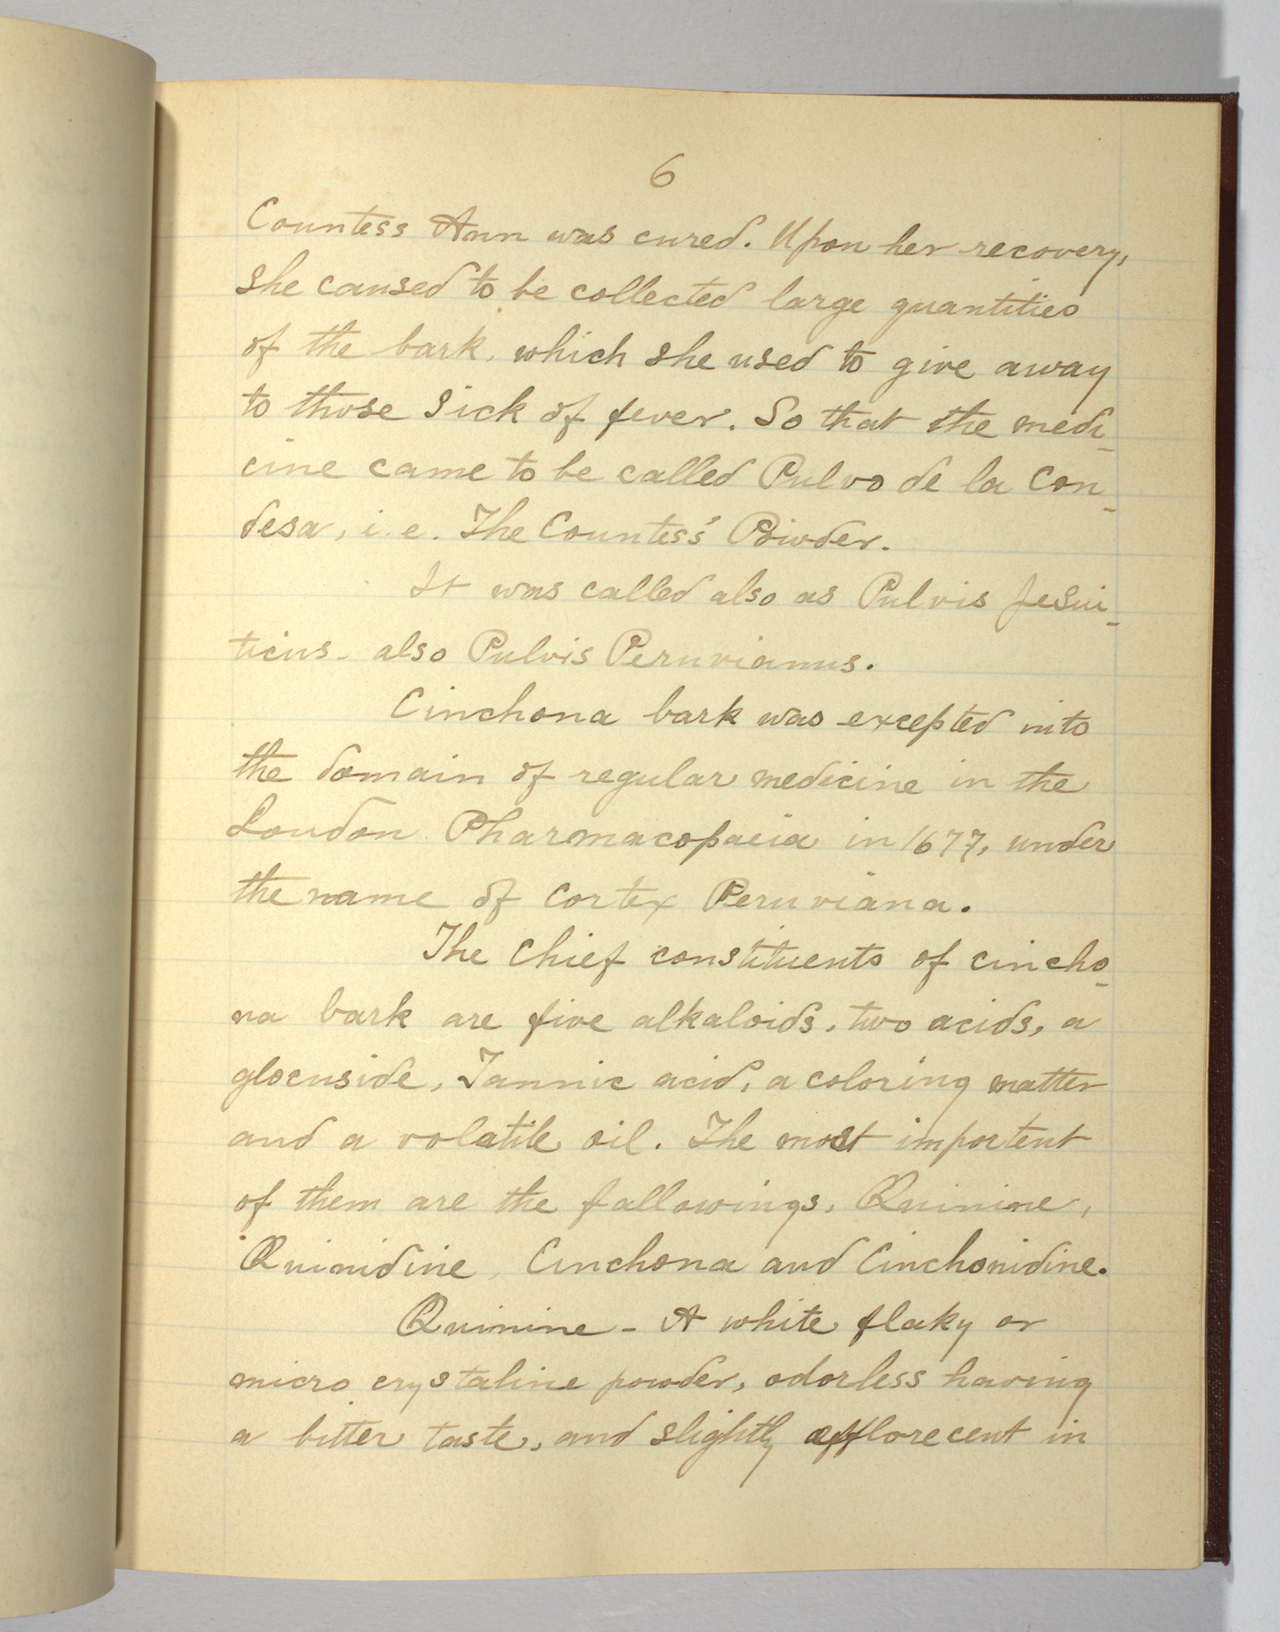 6
Countess Ann was cured. Upon her recovery,
she caused to be collected large quantities
of the bark, which she used to give away
to those sick of fever. So that the medi-
cine came to be called Pulvo de la Con-
desa, i.e. The Countess's Powder.
It was called also as Pulvis Jesui-
ticus- also Pulvis Peruvianus.
Cinchona bark was excepted into
the domain of regular medicine in the
London Pharmacopaeia in 1677, under
the name of Cortex Peruviana.
The chief constituents of cincho-
na bark are five alkaloids, two acids, a
glocuside, Tannic acid, a coloring matter
and a volatile oil. The most importent
of them are the fallowings, Quinine,
Quinidine, Cinchona and Cinchonidine.
Quinine - A white flaky or
micro crystaline powder, odorless having
a bitter taste, and slightly efflorecent in